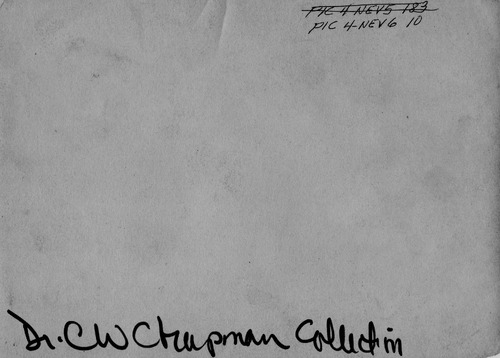 PIC 4 NEV5 183
PIC 4 NEV6 10
Dr. CW Chapman Collection